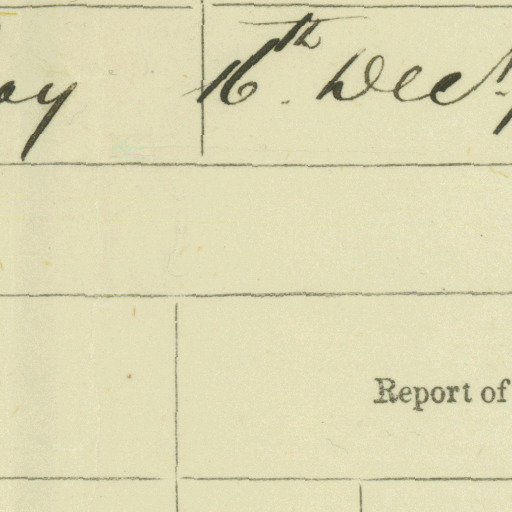 16th. Dec.
Report of